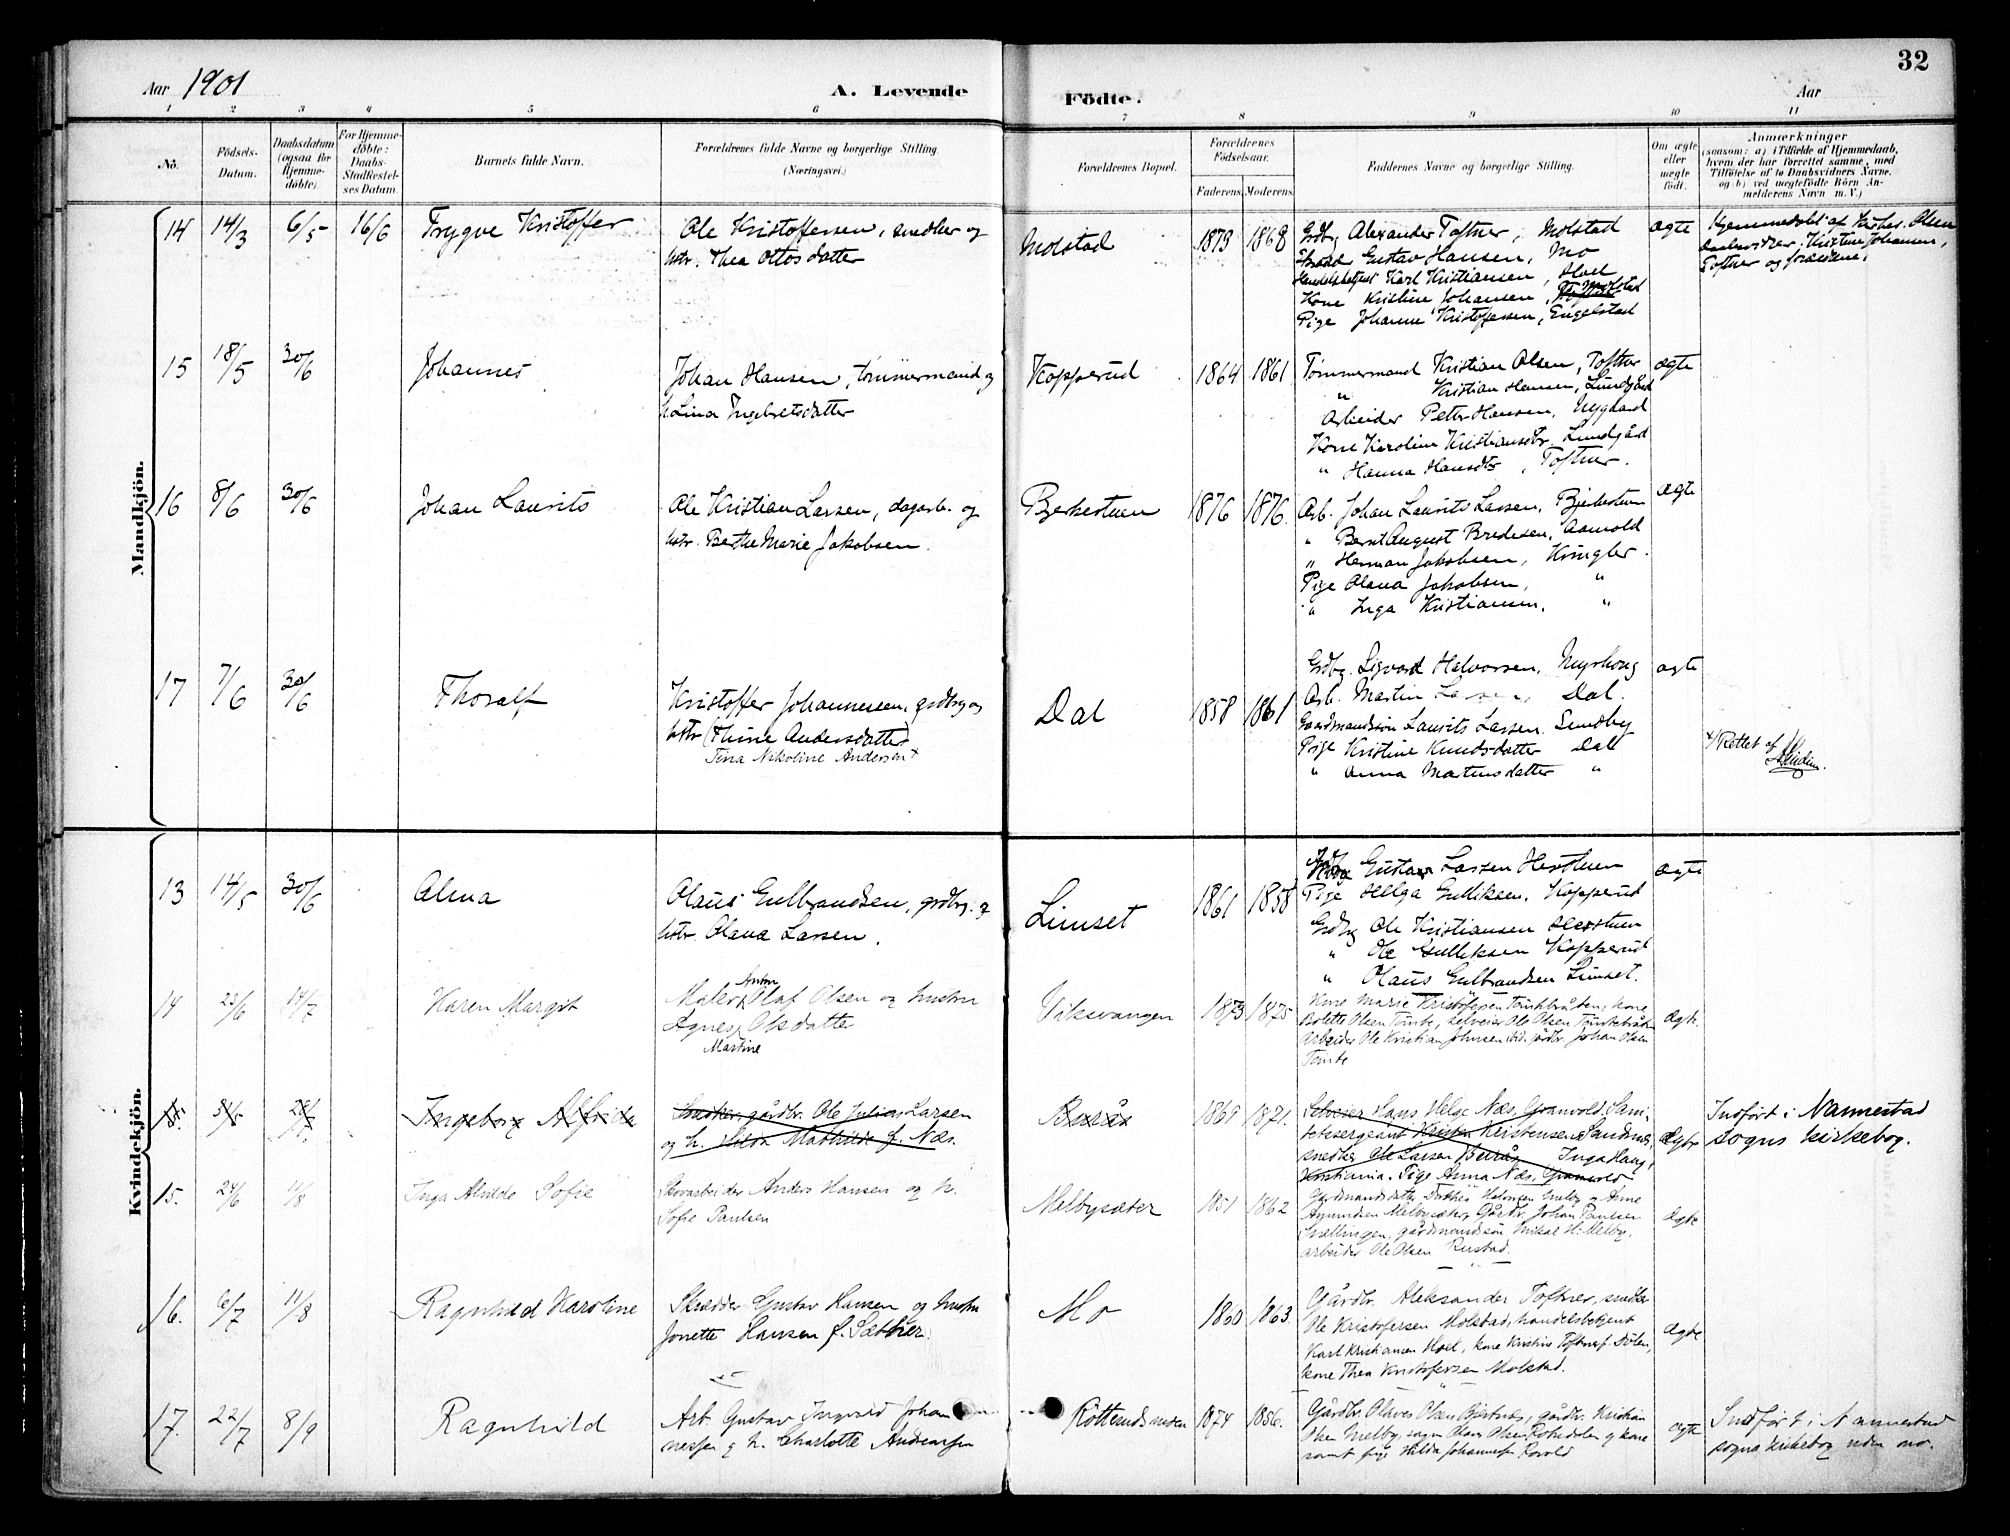 32
Aar 1901
A. Levende
Födte.
Aar
1 2 3 4 5 6 7 8 9 10 11
Nö.
Födsels-
Datum.
Daabsdatum
(ogsaa for
Hjemme-
döbte).
For Hjemme-
döbte:
Daabs-
Stadfæstel-
ses Datum.
Barnets fulde Navn.
Forældrenes fulde Navne og borgerlige Stilling.
(Næringsvei.)
Forældrenes Bopæl.
Forældrenes
Födselsaar.
Faderens. Moderens.
Faddernes Navne og borgerlige Stilling.
Om ægte
eller
uægte
födt.
Anmærkninger
(saasom: a) i Tilfælde af Hjemmedaab,
hvem der har forrettet samme, med
Tilföielse af to Daabsvidners Navne,
og b) ved uægtefödte Börn An-
melderens Navn m. V.)
Mandkjön.
14 14/3 6/5 16/6 Trygve Kristoffer
Ole Kristoffersen, snedker og
hstr. Thea Ottosdatter
Molstad 1873 1868
Grdbr. Alexander Toftner, Molstad
Gustav Hansen, Mo
Handelsbetjent Karl Kristiansen, Hoel
Kone Kristine Johansen, Molstad
Pige Johanne Kristoffersen, Engelstad
ægte
Hjemmedøbt af Olsen
Daabsvidner: Kristine Johansen,
Toftner og forældrene.
15 18/5 30/6 Johannes
Johan Hansen, tømmermand og
h. Lina Ingebretsdatter
Kopperud 1864 1861
Tømmermand Kristian Olsen, Toftner
" Kristian Hansen, Lundgård
Arbeider Petter Hansen, Nygaard
Kone Karoline Kristiansdtr. Lundgård
" Hanna Hansdtr, Toftner.
ægte
16 8/6 30/6 Johan Laurits
Ole Kristian Larsen, dagarb. og
hstr. Berthe Marie Jakobsen.
Bjerkestuen 1876 1876.
Arb. Johan Laurits Larsen, Bjerkestuen
" Bernt August Bredesen, Aamold
" Herman Jakobsen, Kringler.
Pige Olava Jakobsen, "
" Inga Kristiansen, "
ægte
17 7/6 30/6 Thoralf
Kristoffer Johannessen, grdbr og
hstr (Thine Andersdatter)
Tina Nikoline Andersen +
Dal 1858 1861
Grdbr. Sigvard Halvorsen, Myrhoug
Arb. Martin Larsen, Dal.
Gaardmandssøn Laurits Larsen. Sundby
Pige Kristine Knudsdatter Dal
" Anna Martinsdatter "
ægte
+/ Rettet af
Kvindekjön.
13 14/5 30/6 Alma
Olaus Gulbrandsen, grdbr. og
hstr. Olava Larsen.
Limset 1861 1858
Gustav Larsen Herstuen
Pige Helga Gulliksen, Kopperud
Grdbr Ole Kristiansen Herstuen
" Ole Gulliksen Kopperud
" Olaus Gulbrandsen Limset.
ægte
14 23/6 14/7 Karen Margit
Anton
Maler Olaf Olsen og hustru
Agnes Olsdatter
Martine
Viksvangen 1873 1875
Kone Marie Kristofersen Tømtebråten, kone
Olsen Tømte, selveier Ole Olsen Tømtebråten
Arbeider Ole Kristian Johnsen ibid. gårdbr. Johan Olsen
Tømte
ægte.
15. 31/5 Ingeborg Alfride
Snedker, gårdbr. Ole Julius Larsen
og h. Hilda Mathilde f. Næs.
Burås 1869 1871.
Selveier Hans Helge Næs, Granvold. Sam-
Kristensen Sandnes,
snedker Ole Larsen Burås Inga Haug,
Kristiania. Pige Anna Næs, Granvold
ægte
Indført i Nannestad
sogns kirkebog.
15. 24/6 11/8 Inga Alvilde Sofie
Skovarbeider Anders Hansen og h.
Sofie Paulsen
Melbysæter 1851 1862
Gårdmandsdatter Dorthea Halvorsen Melby og Anne
Amundsen Melbysæter, Gårdbr. Johan Paulsen
Snellingen, gårdmandssøn Mikal H. Melby.
arbeider Ole Olsen Rustad.
ægte
16. 6/7 11/8 Ragnhild Karoline
Skrædder Gustav Hansen og hustru
Jonette Hansen f. Sætner.
Mo 1860 1863.
Gårdbr. Aleksander Toftner, snedker
Ole Kristofersen Molstad, handelsbetjent
Karl Kristiansen Hoel, kone Kristine Toftner f. Dølen,
kone Thea Kristofersen Molstad.
ægte
17. 22/7 8/9 Ragnhild
Arb. Gustav Ingvald Johan-
nessen og h. Charlotte Andersen
1874 1856.
Gårdbr. Olaves Olsen, gårdbr. Kristian
Olsen Melby, og kone
samt pige Hilda Johannesen
ægte
Indført i Nannestad
sogns kirkebog uden no.